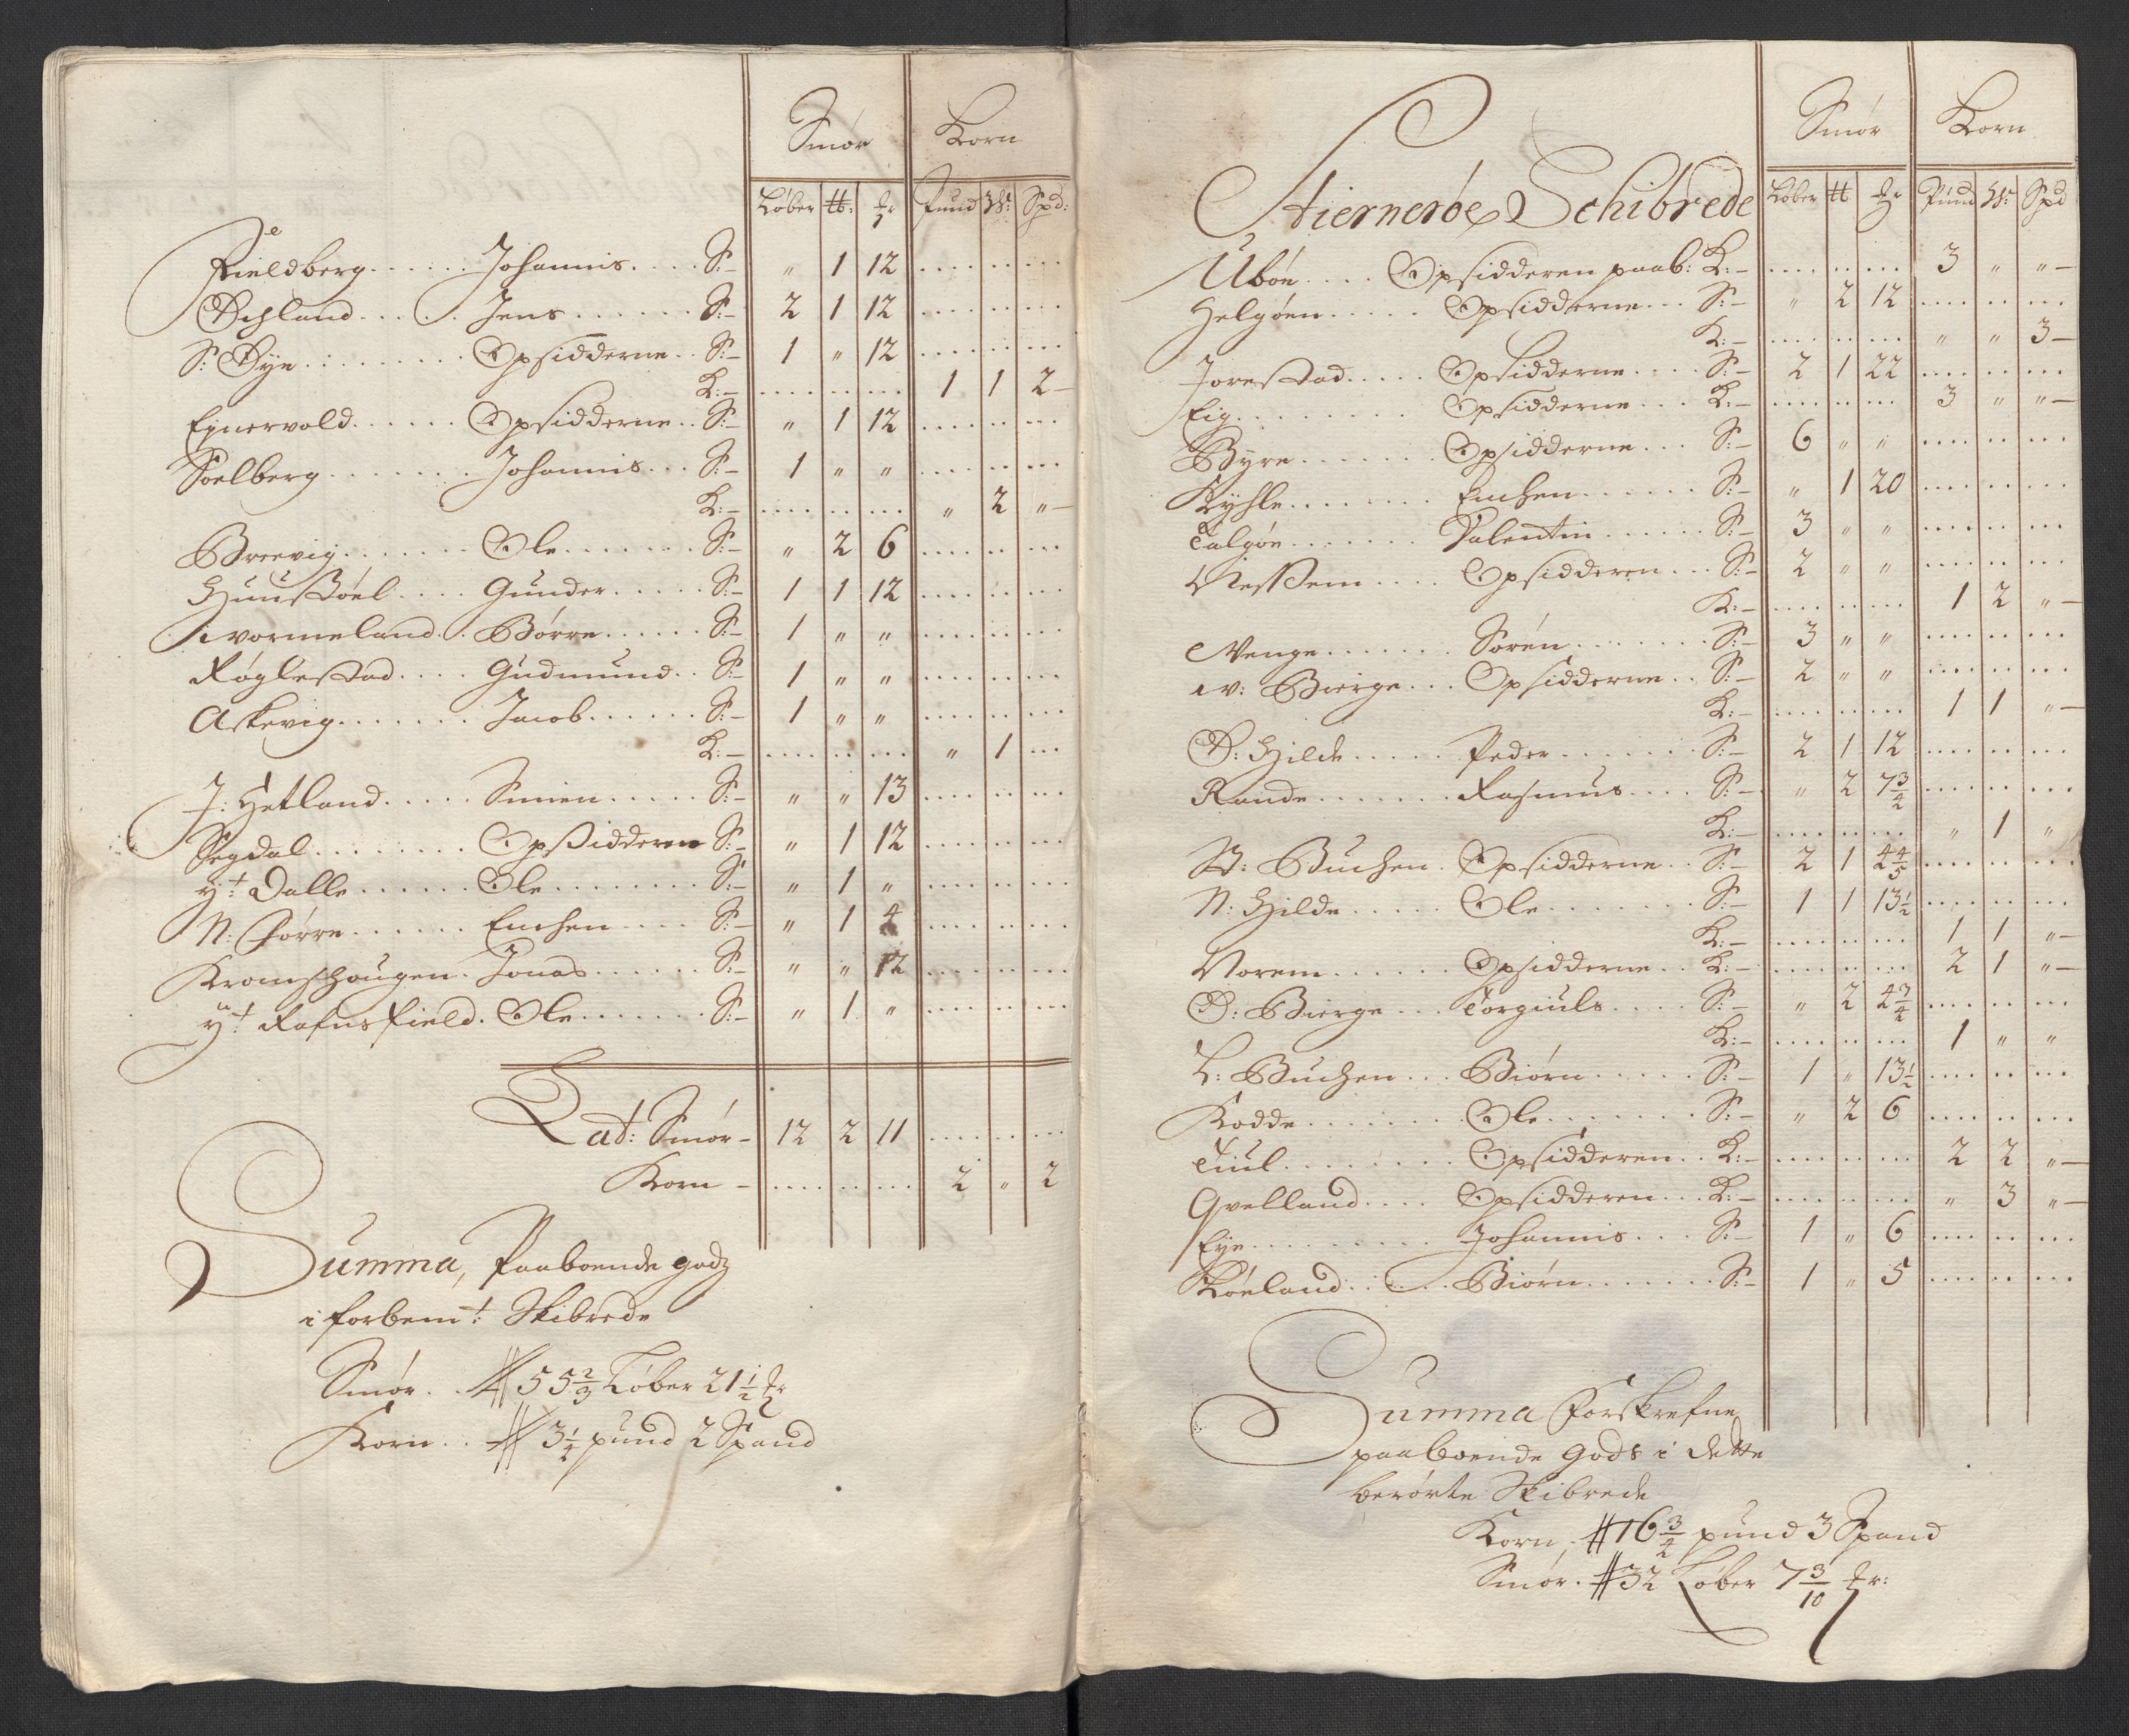 Smør Korn
Løber ℔: Mr Pund Wr: Spd:
Fieldberg...... Johannis.... S:- " 1 12
Øchland..... Jens...... S:- 2 1 12
S: Øye....... Opsidderne.. S:- 1 " 12
K:- 1 1 2-
Egnervold...... Opsidderne.. S:- " 1 12
Soelberg....... Johannis... S:- 1 " "
K:- " 2 "-
Brecvig....... Ole....... S:- " 2 6
Huusstøel.... Gunder..... S:- 1 1 12
wormeland... Børre...... S:- 1 " "
Røglestad.... Gudmund.. S:- 1 " "
Askevig....... Jacob...... S:- 1 " "
K:- " 1
J: Hetland..... Simen..... S:- " " 13
Segdal........ Opsidderen S:- " 1 12
yt: Dalle...... Ole........ S:- " 1 "
N: Førre...... Enchen.... S:- " 1 4
Kromshougen. Jonas...... S:- " " 12
yt: Rafnsfield. Ole....... S:- " 1 "
Lat: Smør- 12 2 11
Korn- 2 " 2
Summa, Paaboende godz
i forbemt: Skibrede
Smør.. # 55 2/3 Løber 21 1/2 Mr
Korn.. # 3 1/4 pund 2 Spand
Smør Korn
Hiernerøe Schibrede Løber ℔ Mr Pund Wr: Spd
Ubøn.... Opsidderen paab: K:- 3 " "-
Helgøen..... Opsidderne... S:- " 2 12
K:- " " 3-
Jorestad..... Opsidderne.... S:- 2 1 22
Eig........ Opsidderne... K:- 3 " "-
Byre...... Opsidderne... S:- 6 " "
Kyhle....... Enchen...... S:- " 1 20
Talgøe....... Valentin..... S:- 3 " "
Nessem.... Opsidderen... S:- 2 " "
K:- 1 2 "-
Venge....... Sørén....... S:- 3 " "
w: Bierge... Opsidderne.. S:- 2 " "
K:- 1 1 "-
Ø: Hilde..... Peder....... S:- 2 1 12
Rande....... Rasmus.... S:- " 2 7 3/4
K:- " 1 "
St: Buchen. Opsidderne.. S:- 2 1 4 4/5
N: Hilde..... Ole....... S:- 1 1 13 1/2
K:- 1 1 "-
Vorem...... Opsidderne.. K:- 2 1 "-
Ø: Bierge... Torgiuls.... S:- " 2 4 3/4
K:- 1 " "
L: Buchen... Biørn..... S:- 1 " 13 1/2
Kodde....... Ole....... S:- " 2 6
Tiul....... Opsidderen.. K:- 2 2 "-
Qvelland.... Opsidderen... K:- " 3 "-
Eye......... Johannis... S:- 1 " 6
Røeland..... Biørn....... S:- 1 " 5
Summa Forskrefne
paaboende Gods i dette
berørte Skibrede
Korn, # 16 3/4 pund 3 Spand
Smør. # 32 Løber 7 3/10 Mr: